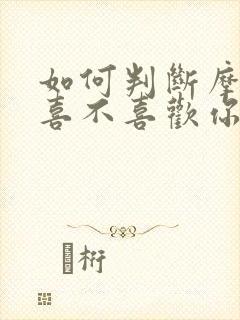 如何判斷摩
喜不喜歡你
桁